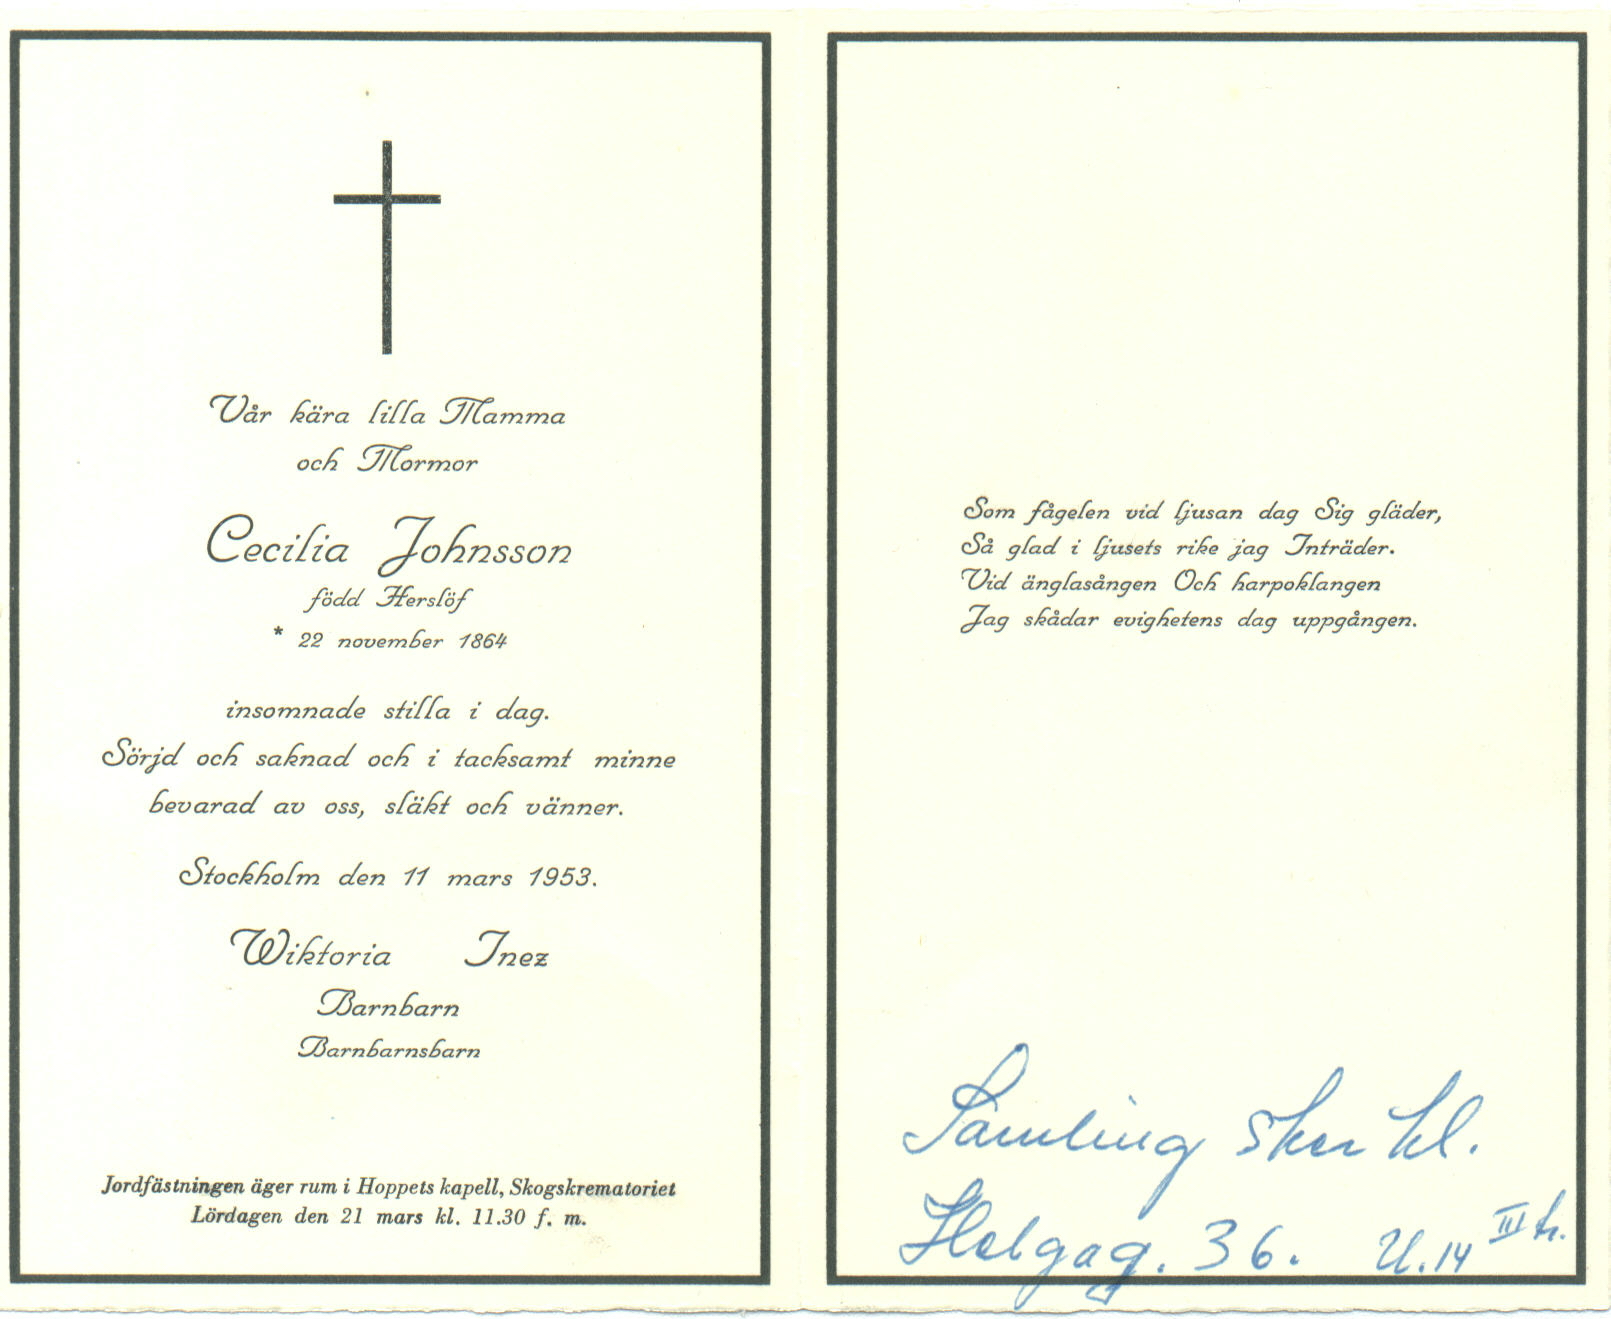 Vår kära lilla Mamma
och Mormor
Cecilia Johnsson
född Herslöf
* 22 november 1864
insomnade stilla i dag.
Sörjd och saknad och i tacksamt minne
bevarad av oss, släkt och vänner.
Stockholm den 11 mars 1953.
Wiktoria Inez
Barnbarn
Barnbarnsbarn
Jordfästningen äger rum i Hoppets kapell, Skogskrematoriet
Lördagen den 21 mars kl. 11.30 f. m.
Som fågelen vid ljusan dag Sig gläder,
Så glad i ljusets rike jag Inträder.
Vid änglasången Och harpoklangen
Jag skådar evighetens dag uppgången.
Samling sker kl.
Helgag. 36. U.14 III tr.